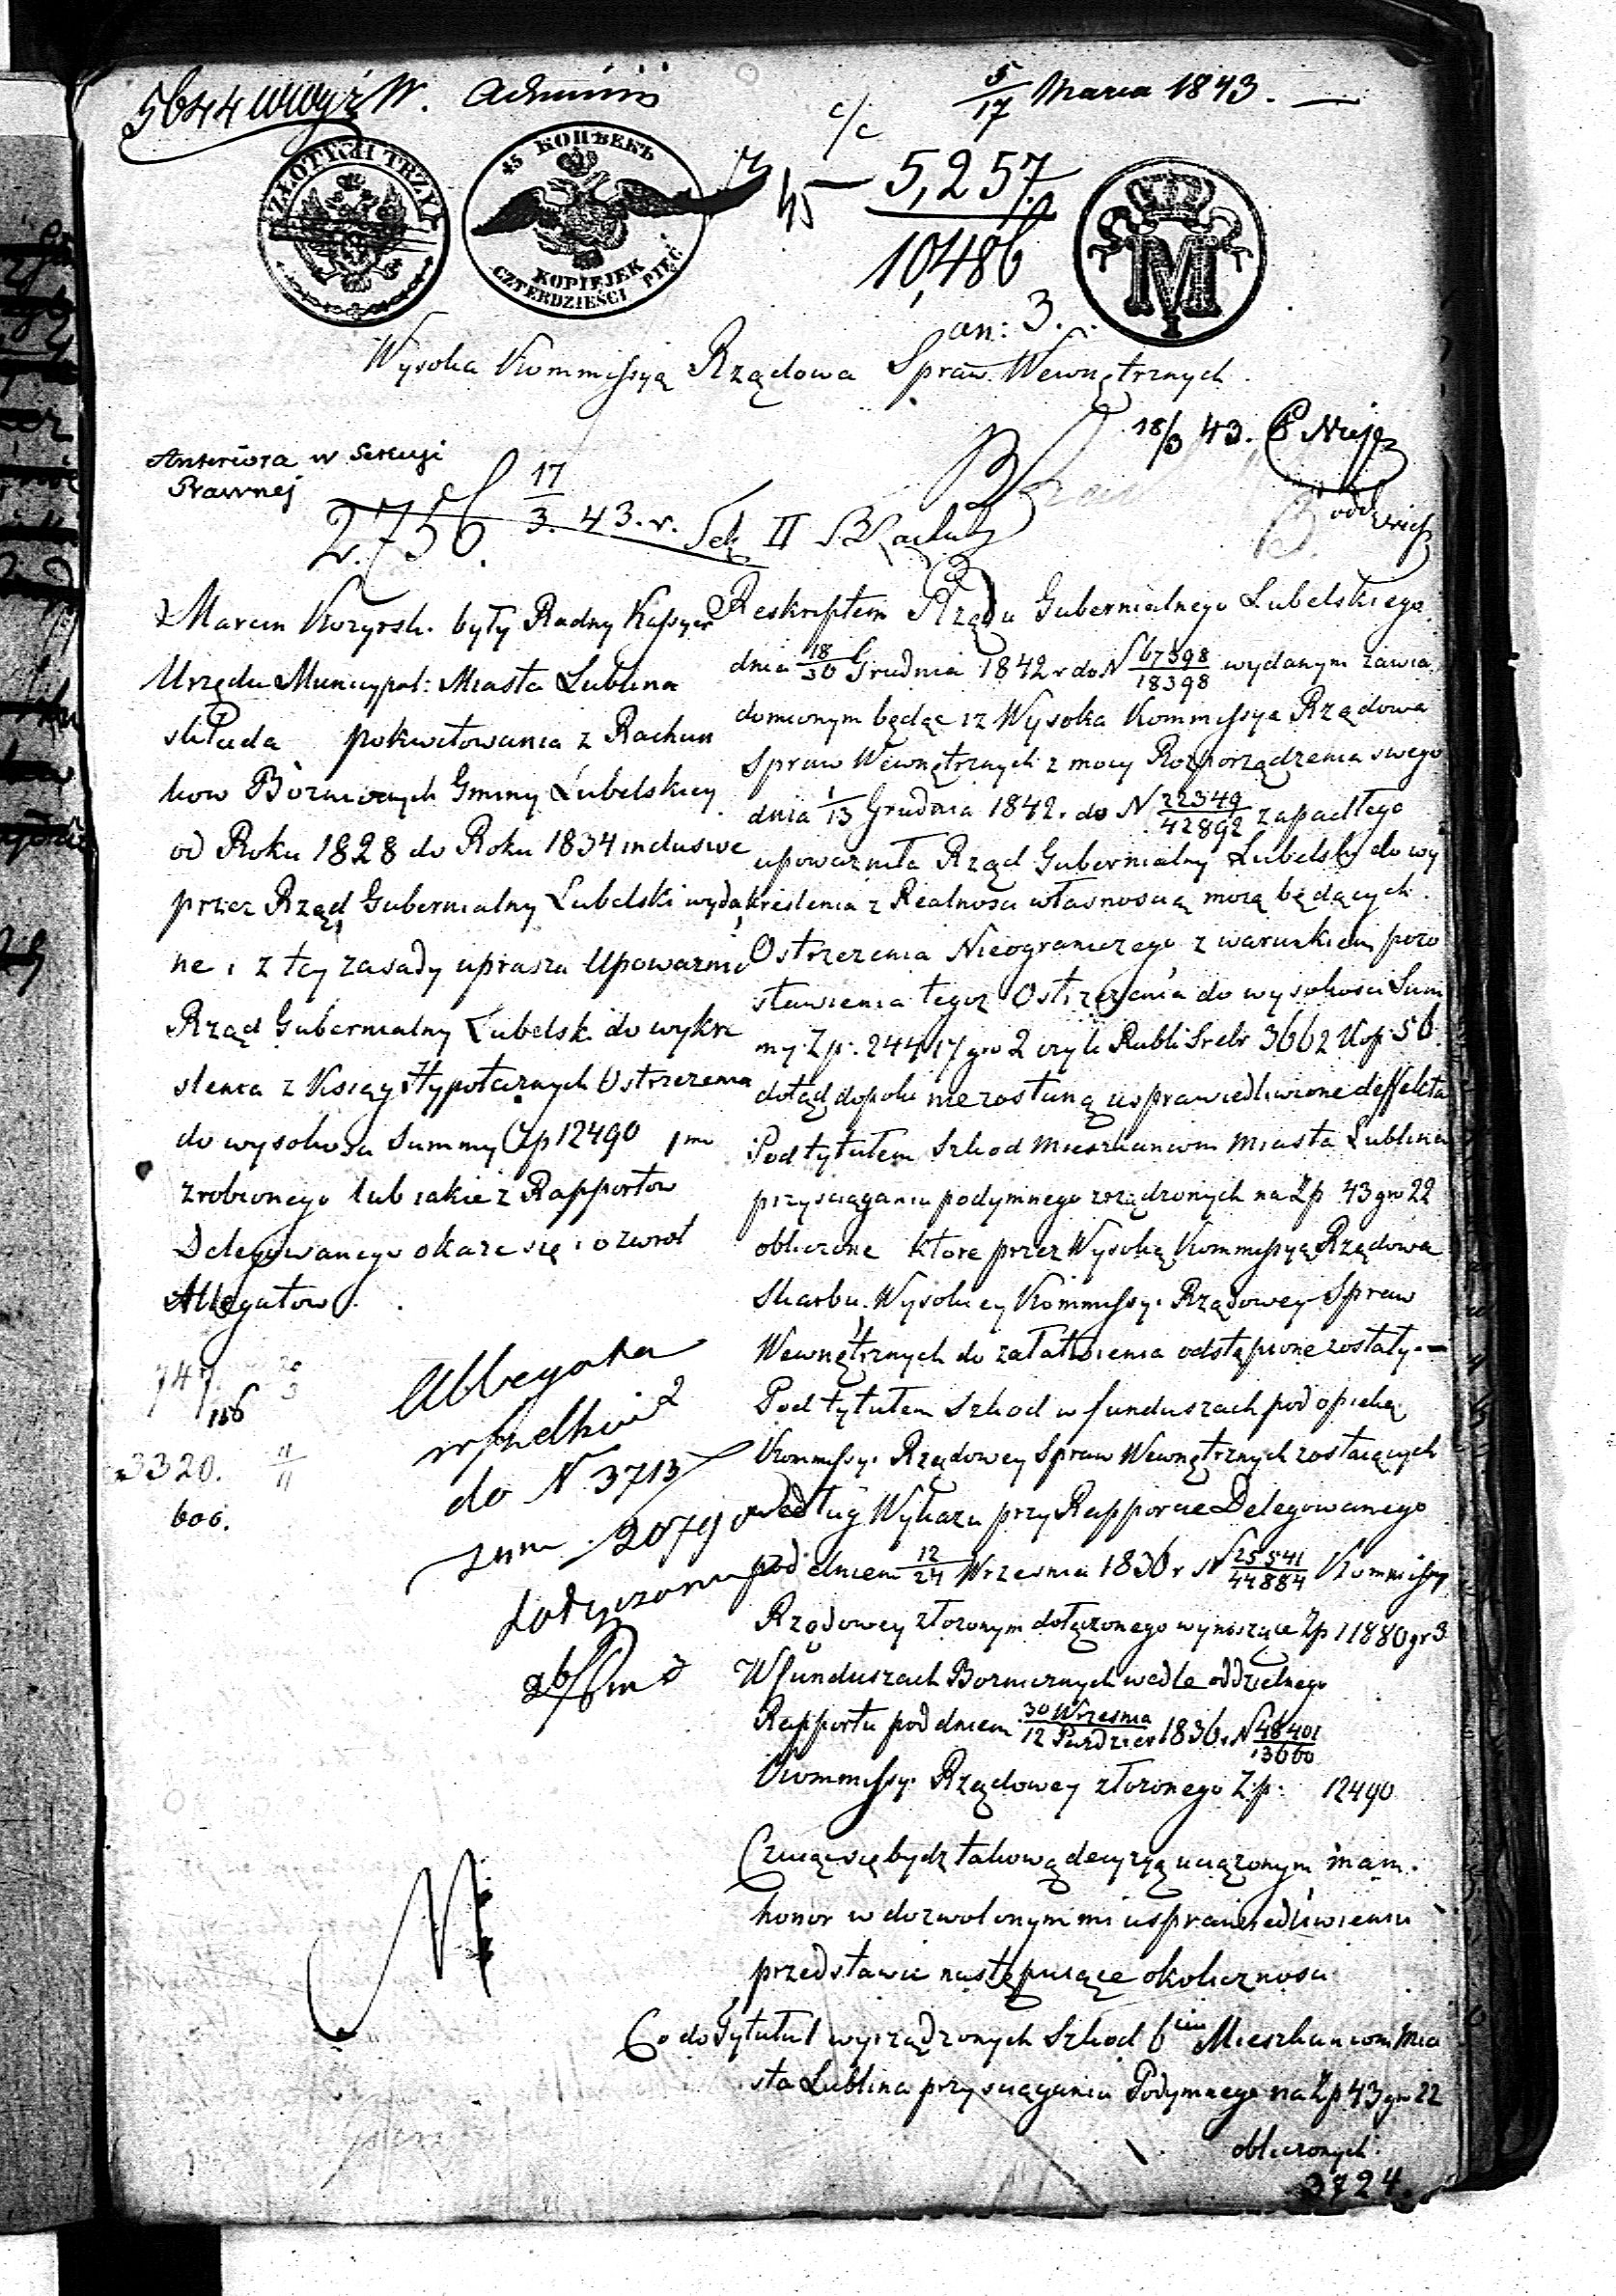 5644 W. Admiń
5/17 Marca 1843.
c/c
ZŁOTYCH TRZY
45 КОПѢЕКЪ
KOPIEJEK
CZTERDZIEŚCI PIĘĆ
45 — 5,257
10,486
an: 3.
M
I
Wysoka Kommissyą Rządowa Spraw Wewnętrznych.
18/3 43.
Anteriora w Sekcyi
Prawnej
2.756.
17/3. 43. r. Sek II
Marcin Kozyrsk. były Radny Kassyer
Urzędu Municypal: Miasta Lublina
składa pokwitowania z Rachun
kow Bożniczych Gminy Lubelskiey
od Roku 1828 do Roku 1834 inclusive
przez Rząd Gubernialny Lubelski wyda
ne i z tey zasady uprasza Upoważnić
Rząd Gubernialny Lubelsk. do wykre
slenia z Ksiąg Hypotecznych Ostrzezenia
do wysokosci Summy Zp 12490
zrobionego lub iakie z Rapportow
Delegowanego okaze się i o zwrot
Allegatow.
747.
106
3320.
600.
Allegata
do N. 3713
2079
Reskryptem Rządu Gubernialnego Lubelskiego
dnia 18/30 Grudnia 1842 r do N 67398/18398 wydanym zawia
domionym będąc iz Wysoka Kommissya Rządowa
Spraw Wewnętrznych z mocy Rozporządzenia swego
dnia 1/13 Grudnia 1842. do N 22349/42892 zapadłego
upowazniła Rząd Gubernialny Lubelski do wy
kreslenia z Realnosci własnoscią moią będących
Ostrzezenia Nieograniczego z warunkiem pozo
stawienia tegoz Ostrzezenia do wysokosci Sum
my Zp. 24417 gro 2 czyli Rubli Srebr 3662 Kop: 56.
dotąd dopoki nie zostaną usprawiedliwione deffekta
Pod tytułem Szkod Mieszkancom Miasta Lublina
przy sciąganiu podymnego zrządzonych na Zp 43 gro 22
obliczone które przez Wysoką Kommissyą Rządowa
Skarbu, Wysokiey Kommissyi Rządowey Spraw
Wewnętrznych do załatwienia odstąpione zostały.—
Pod tytułem Szkod w funduszach pod opieką
Kommissyi Rządowey Spraw Wewnętrznych zostaiących
według Wykazu przy Rapporcie Delegowanego
pod dniem 12/24 Wrzesnia 1836 r N 25541/44884 Kommissyi
Rządowey złozonym dołączonego wynoszące Zp 11880 gr 3
W funduszach Bozniczych wedle oddzielnego
Rapportu pod dniem 30 Wrzesnia/12 Pazdzier 1836. N 48401/13660
Kommissyi Rządowey złozonego Z.p: 12490
Czuiąc się bydz takową decyzyą uciązonym mam
honor w dozwolonym mi usprawiedliwieniu
przedstawic następuiące okolicznosci
Co do Tytułu 1 wyrządzonych Szkod 6ciu Mieszkancom Mia
sta Lublina przy sciąganiu Podymnego na Zp 43 gro 22
obliczonych
3724.